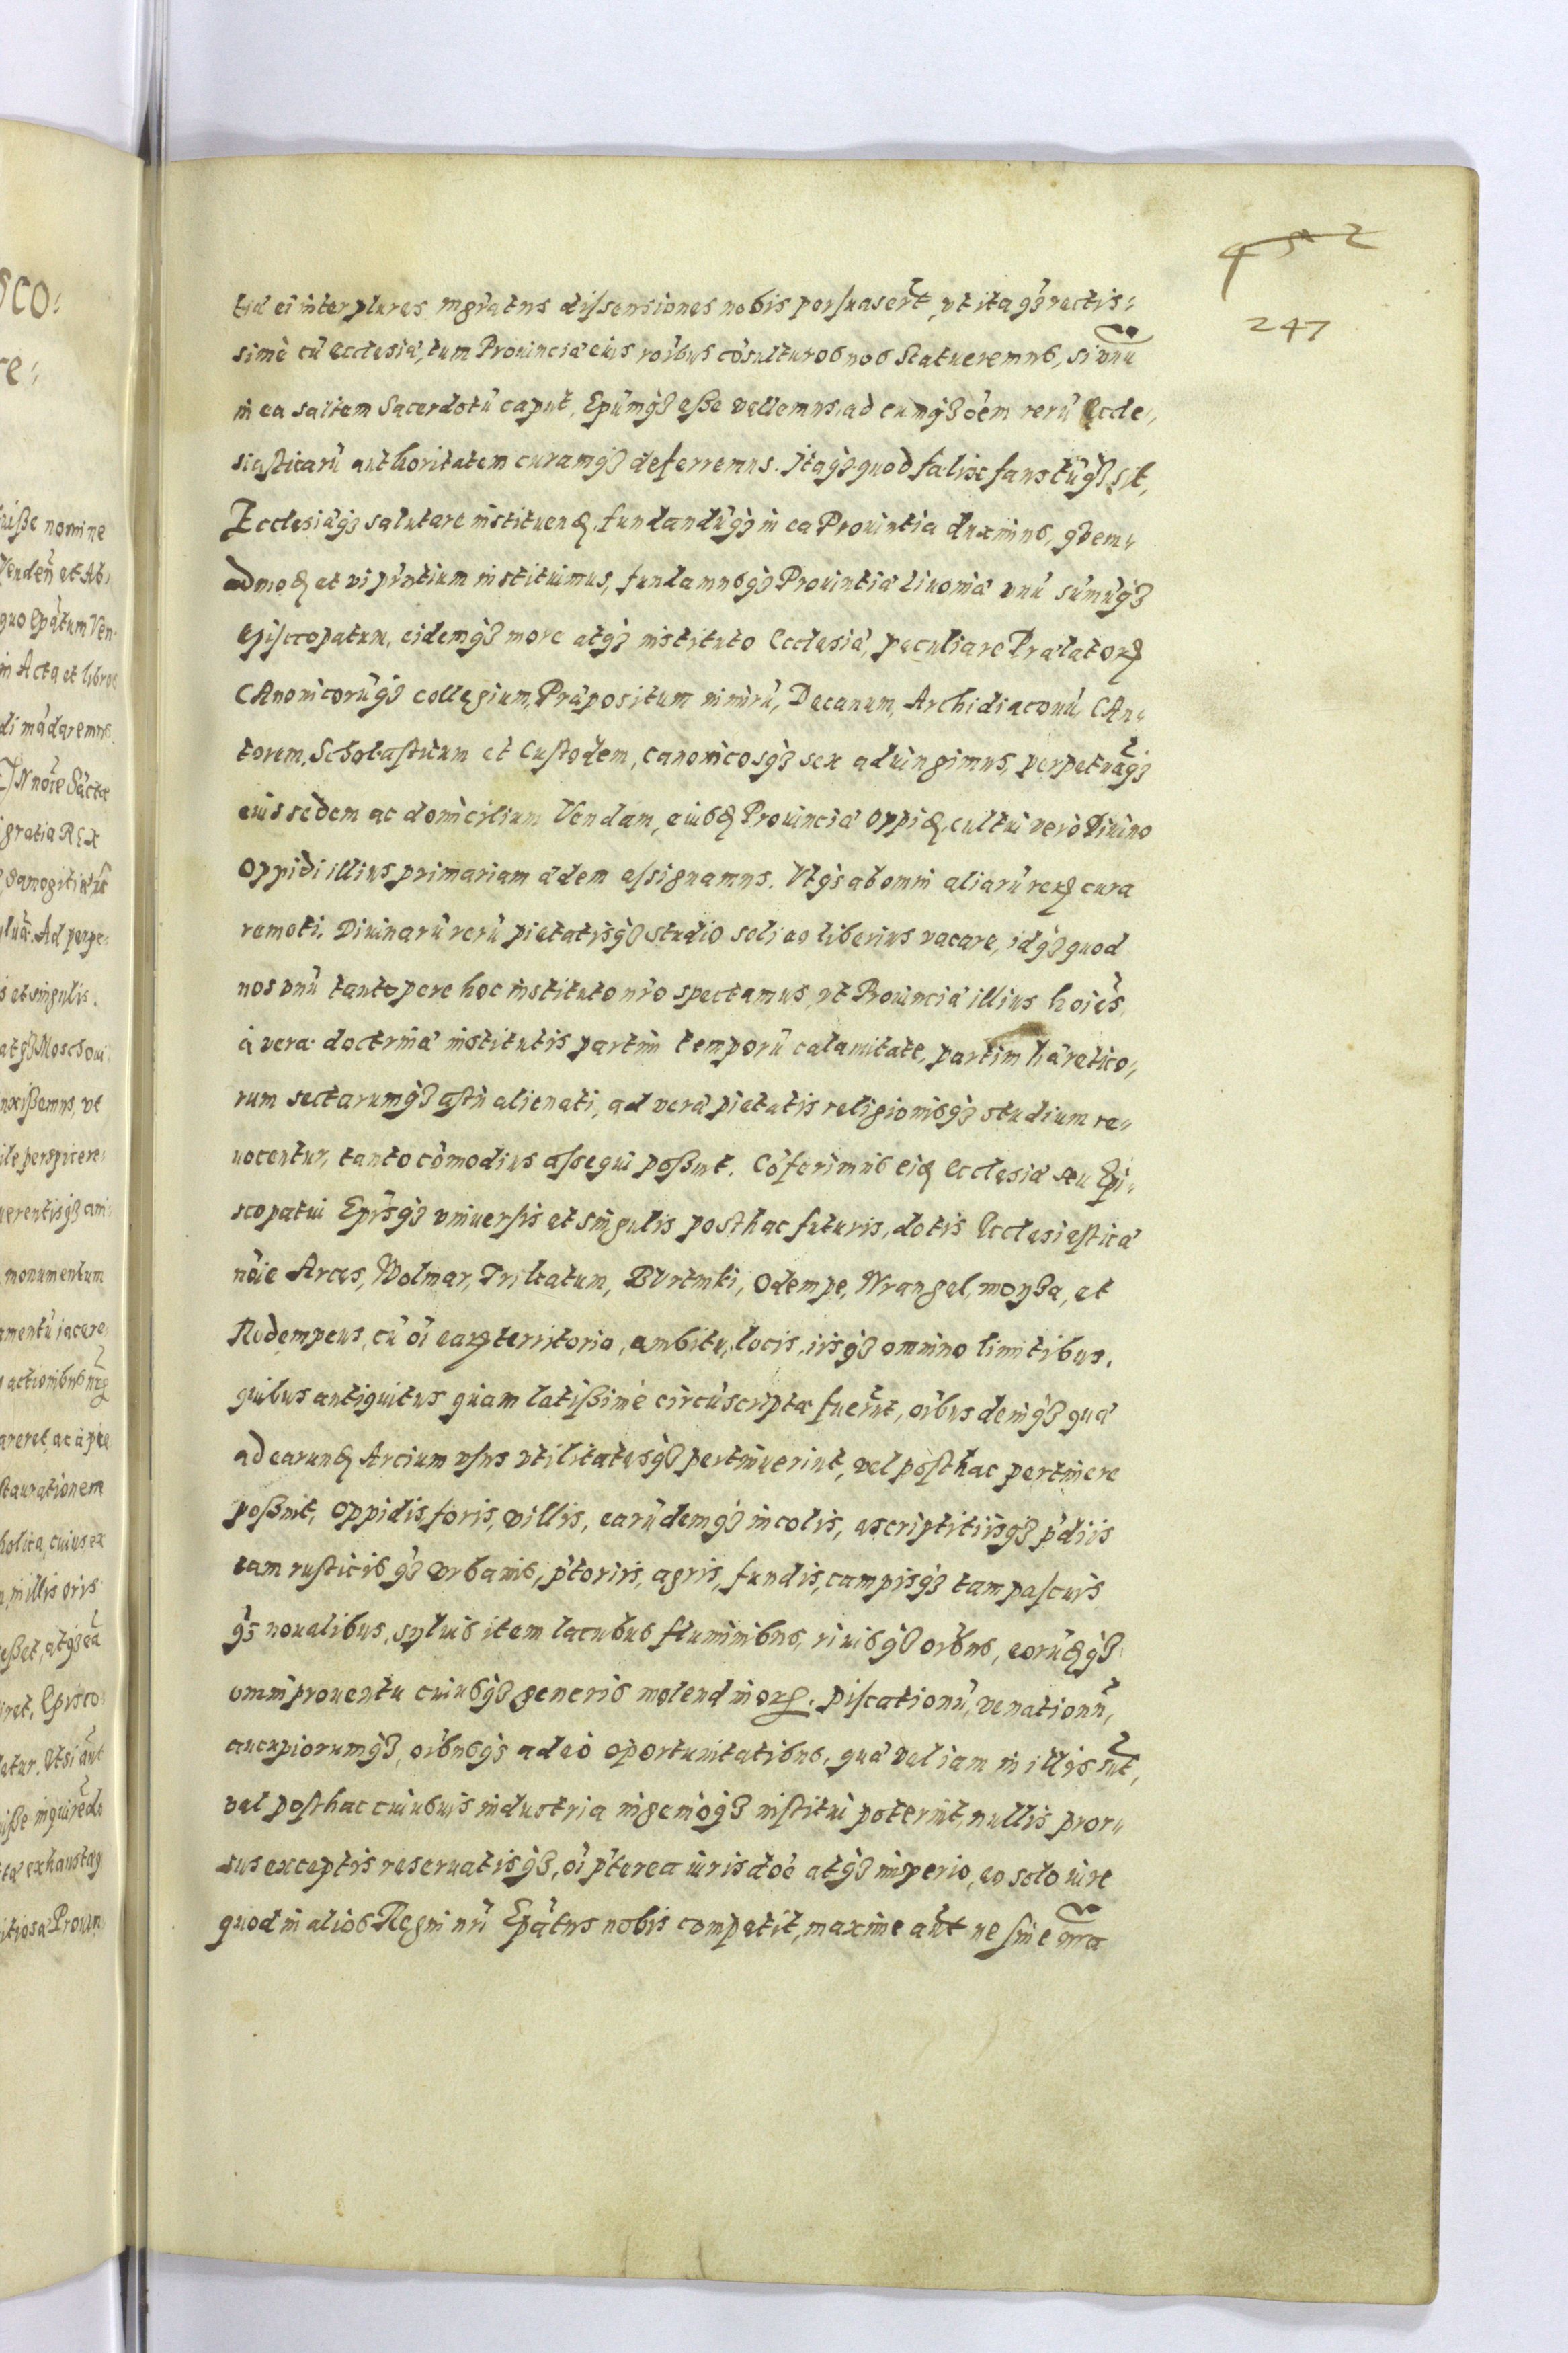 452
247
tiæ ei inter plures migratus dissensiones nobis persuaserūt, vt ita q̃ rectis:
sime cū Ecclesiæ, tum Prouinciæ eius rōibus cōsulturos nos Statueremus, si vnū
in ea saltem Sacerdotū caput, Ep̄umq; esse vellemus, ad eumq; oēm rerū Eccle,
siasticarū authoritatem curamq; deferremus. Itaq; quod fælix faustūq; sit,
Ecclesiæq; salutare instituend, fundandūq; in ea Prouintia duximus, quem,
admod et vi pr̄ntium instituimus, fundamusq; Prouintiæ Liuoniæ vnū sūmūq;
Episcopatum, eidemq; more atq; instituto Ecclesiæ, peculiare Prælatorꝝ
CAnonicorūq; collegium, Præpositum nimirū, Decanum, Archidiaconū, CAn,
torem, Scholasticum et Custodem, canonicosq; sex adiungimus, perpetuāq;
eius sedem ac domicilium Vendam, eiusd Prouinciæ oppid, cultui vero Diuino
oppidi illius primariam ædem assignamus. Vtq; ab omni aliarū rerꝝ cura
remoti, Diuinarū rerū pietatisq; studio soli eo liberius vacare, idq; quod
nos vnū tantopere hoc instituto nr̄o spectamus, vt Prouinciæ illius hoīes,
à vera doctrinæ institutis partim temporū calamitate, partim hæretico,
rum sectarumq; astu alienati, ad veræ pietatis religionisq; studium re,
uocentur, tanto cōmodius assequi possint. Cōferimus eid Ecclesiæ seu Epi,
scopatui Ep̄isq; vniuersis et singulis posthac futuris, dotis Ecclesiasticæ
nōie Arces, Wolmar, Trikatum, BUrtniki, Odempe, Wrangel, moysa, et
Rodempeus, cū oī earꝝ territorio, ambitu, locis, iisq; omnino limitibus,
quibus antiquitus quam latissime circūscriptæ fuerūt, oībus deniq; quæ
ad earund Arcium vsus vtilitatesq; pertinuerint, vel posthac pertinere
possint, oppidis, foris, villis, earūdemq; incolis, ascriptitiisq; p̄diis
tam rusticis q̃ vrbanis, p̄toriis, agris, fundis, campisq; tam pascuis
q̃ noualibus, syluis item lacubus fluminibus, riuisq; oībus, eorūdq;
omni prouentu cuiusq; generis molendinorꝝ, piscationū, venationū,
aucupiorumq;, oībusq; adeo oportunitatibus, quæ vel iam in illis sūt,
vel posthac cuiusuis industria ingenioq; institui poterint, nullis pror,
sus exceptis reseruatisq;, oī p̄terea iurisdōe atq; imperio, eo solo iure
quod in alios Regni nr̄i Ep̄atus nobis competit, maxime aūt ne sine nr̄a